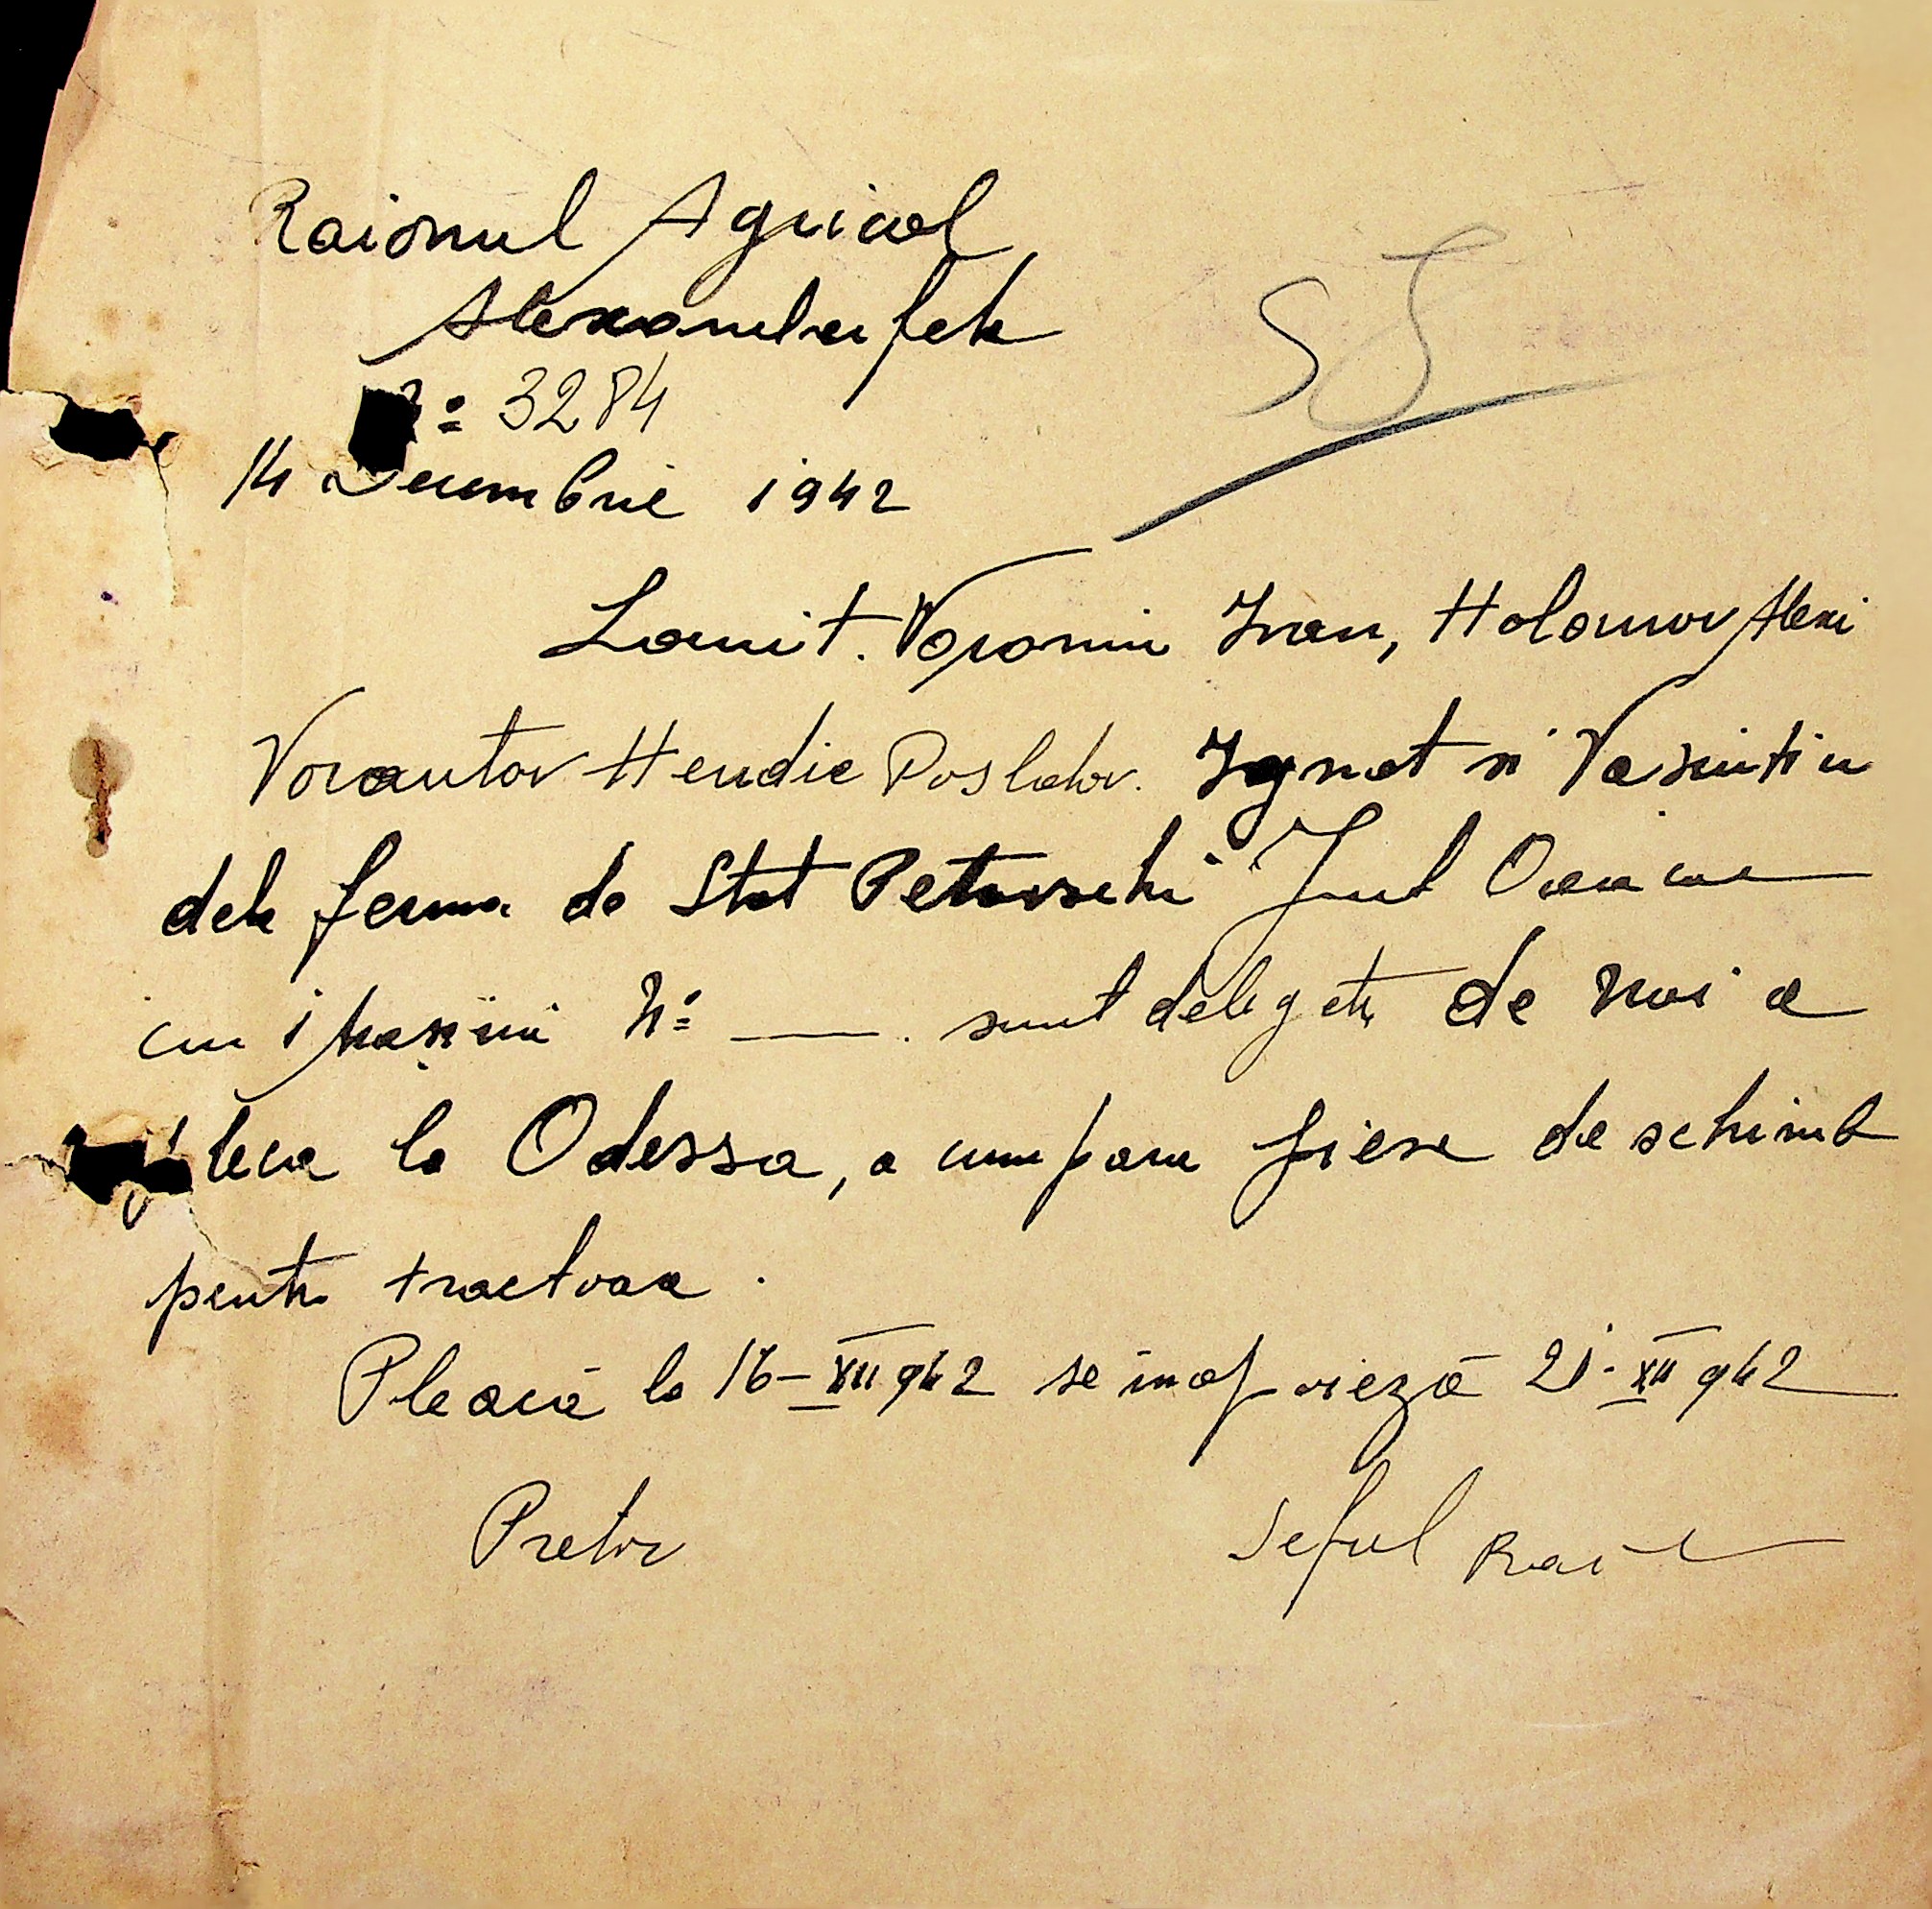 Raionul Agricol
Alexandrfeld
No 3284
14 Decembrie 1942
55
Locuit. Voronin Ivan, Holomov Alexi
Vorantov Hendie Poslatov. Ignat si
dela ferma de Stat Petrovschi Jud
cu 1 masini No — . sunt delegati de noi a
pleca la Odessa, a cumpara piese de schimb
pentru tractoare.
Pleacă la 16-XII 942 se inapoieză 21-XII 942
Pretor Seful